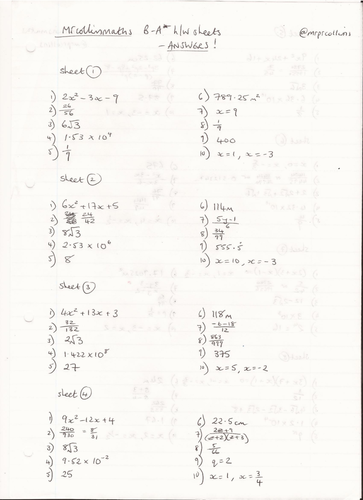 Mrcollinsmaths B-A* h/w sheets @mrprcollins
- ANSWERS!
Sheet 1
1) 2x² - 3x - 9
2) 26/56
3) 6√3
4) 1.53 × 10⁹
5) 1/9
6) 789.25m²
7) x = 9
8) 1/9
9) 400
10) x = 1, x = -3
Sheet 2
1) 6x² + 17x + 5
2) 24/42
3) 8√3
4) 2.53 × 10⁶
5) 8
6) 114m
7) 5y-1/6
8) 84/99
9) 555.5
10) x = 10, x = -3
Sheet 3
1) 4x² + 13x + 3
2) 32/182
3) 2√3
4) 1.422 × 10⁸
5) 27
6) 118m
7) -x-18/12
8) 863/999
9) 375
10) x = 5, x = -2
Sheet 4
1) 9x² - 12x + 4
2) 240/930 = 8/31
3) 8√3
4) 9.52 × 10⁻²
5) 25
6) 22.5cm
7)
8) 5/66
9) q = 2
10) x = 1, x = 3/4